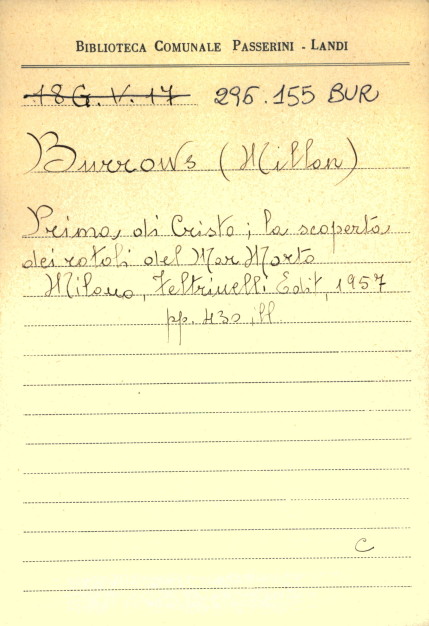 BIBLIOTECA COMUNALE PASSERINI - LANDI
18 G. V. 17 296.155 BUR
Burrows (Millar)
Prima di Cristo; la scoperta
dei rotoli del Mar Morto
Milano, Feltrinelli Edit, 1957
pp. 430 ill.
C